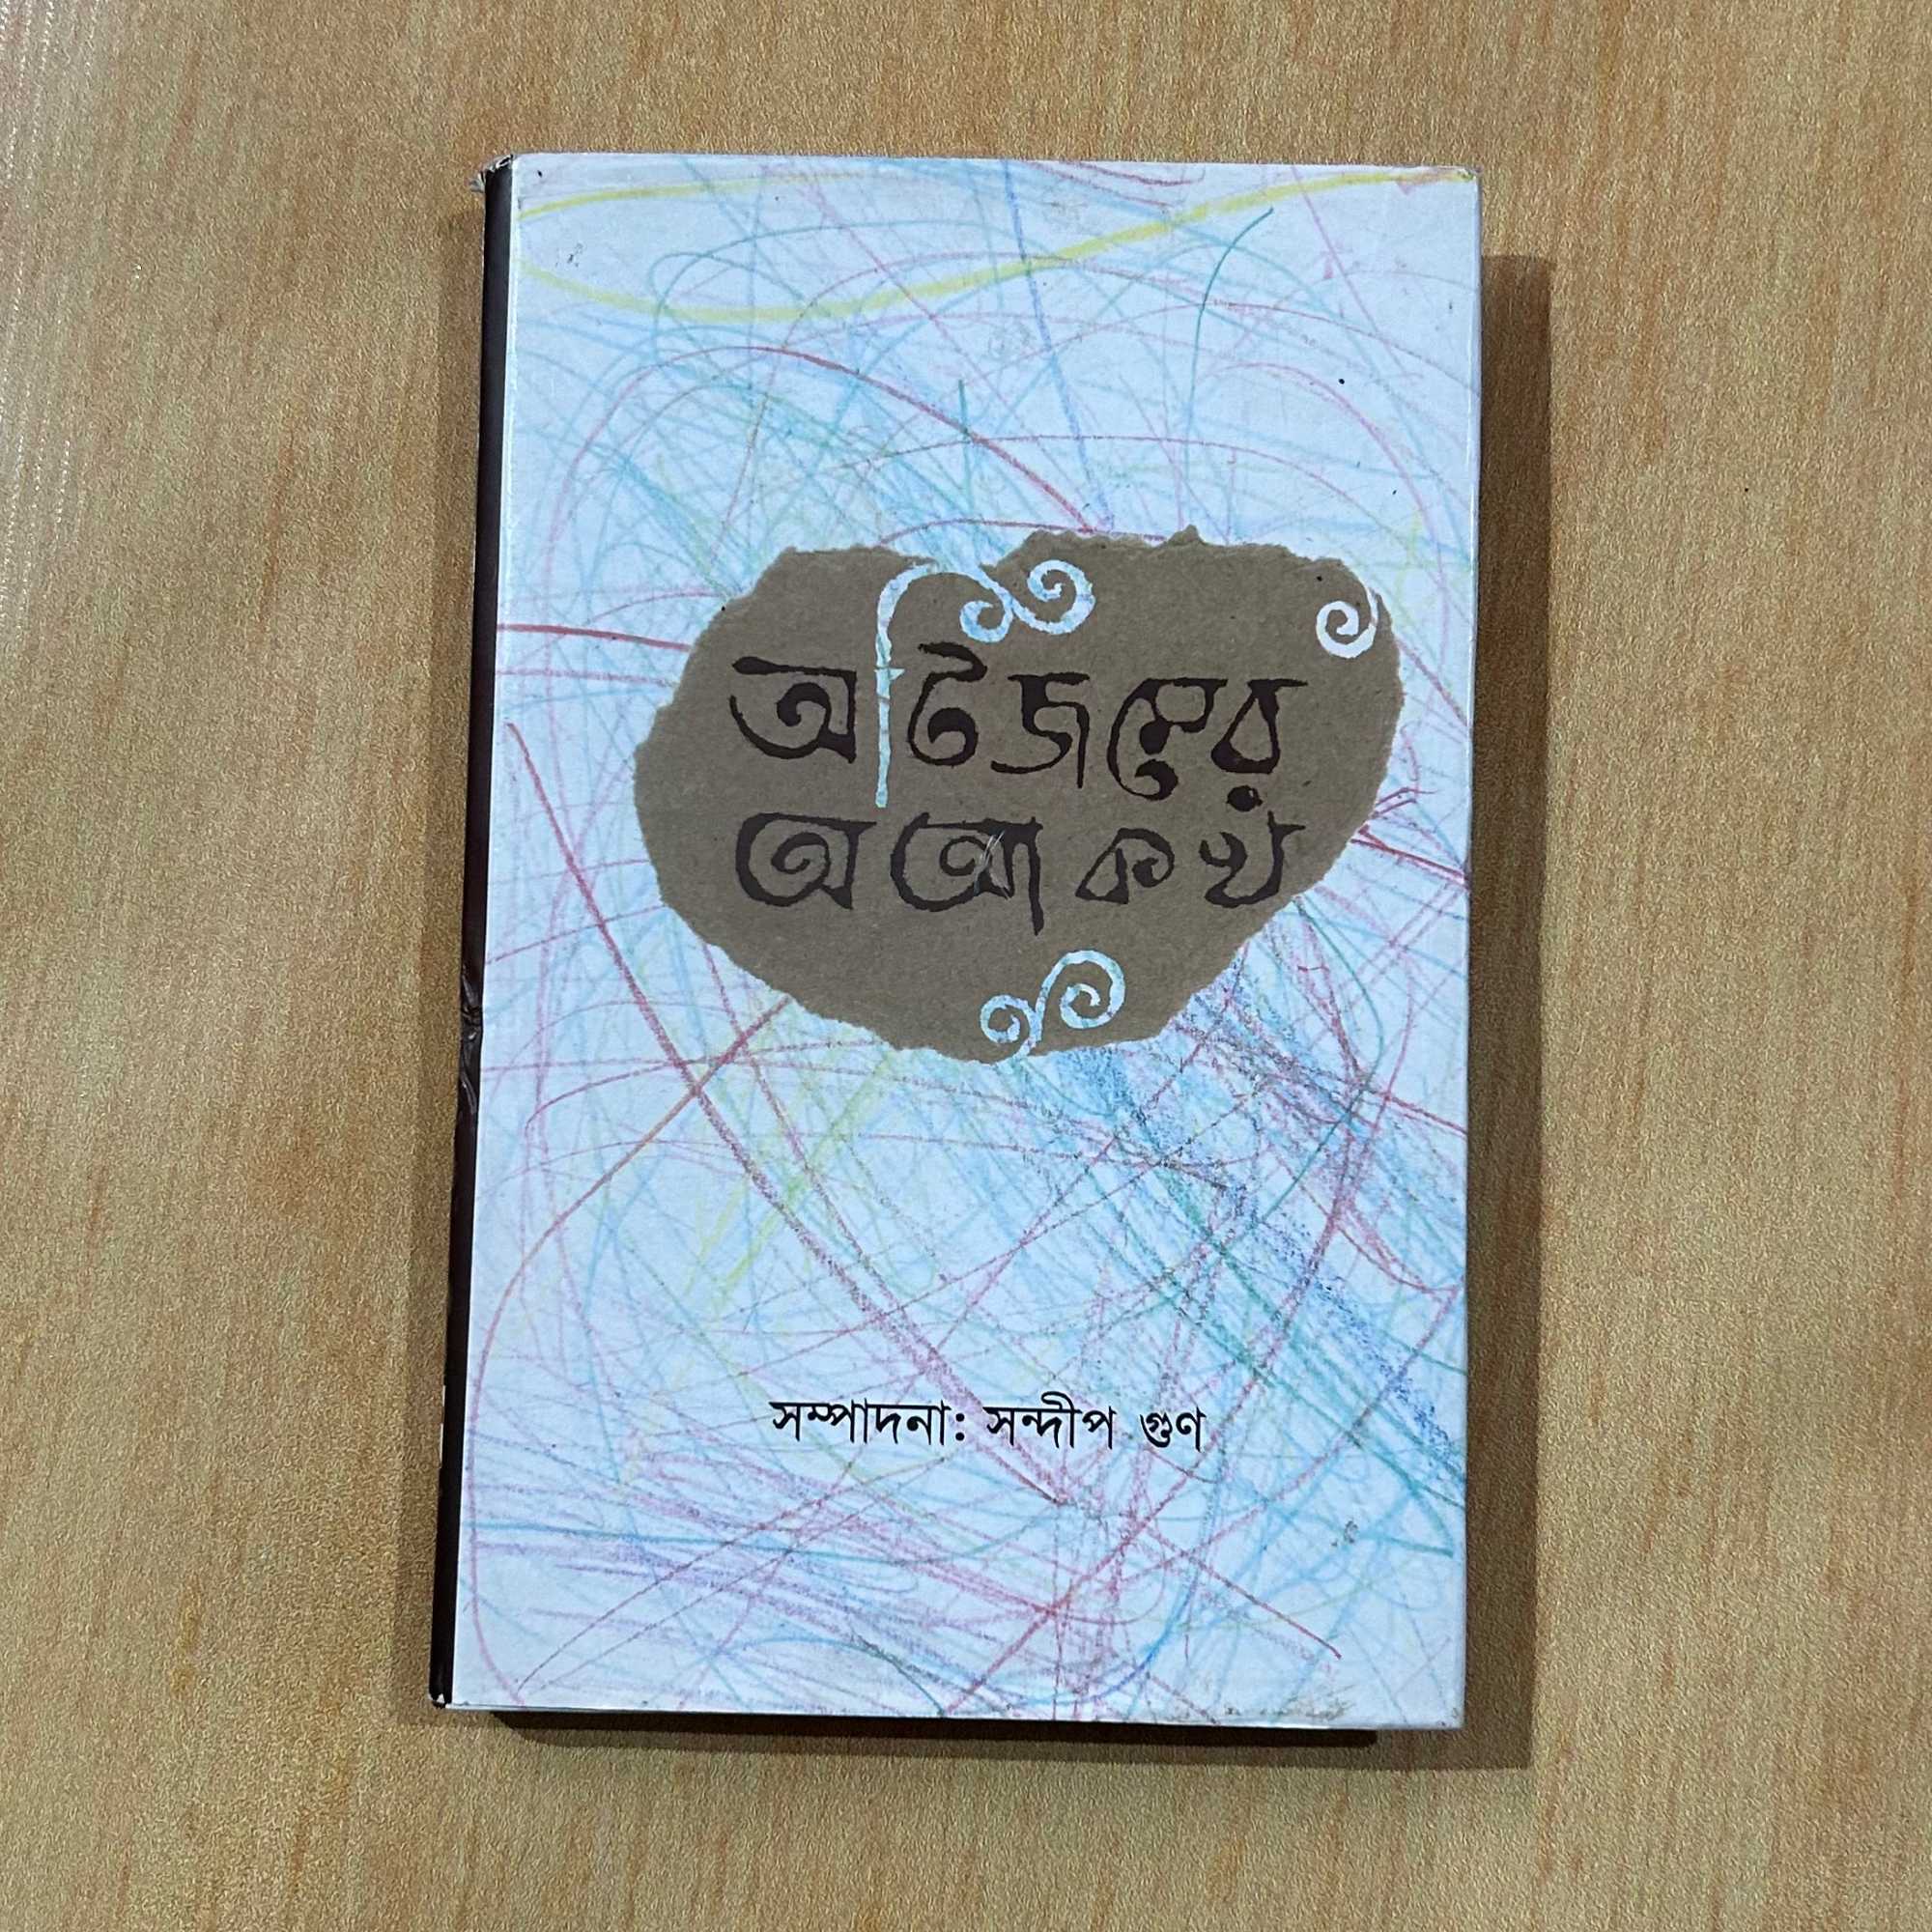 অটিজমের
অ আ ক খ
সম্পাদনা: সন্দীপ গুণ